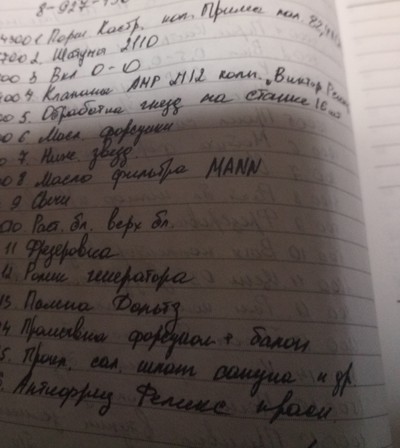 8-927-
1. Порш Кастр. кол. Прима пал. 82,
700 2. Шатуны 2110
00 3. Вкл 0-0
00 4. Клапана АМР 2112 комп. „Виктор Р
00 5. Обработка гнезд на станке 16 кл
00 6. Масл. форсунки
0 7. Ниж. звезд
0 8. Масло фильтра MANN
9. Свечи
10. Раст. бл. верх бл.
11 Фрезеровка
12. Ролик генератора
13. Помпа Dольтz
14 Промывка форсунок + балон
5. Прокл. сал. шланг сапуна и др
Антифриз Феликс красн.